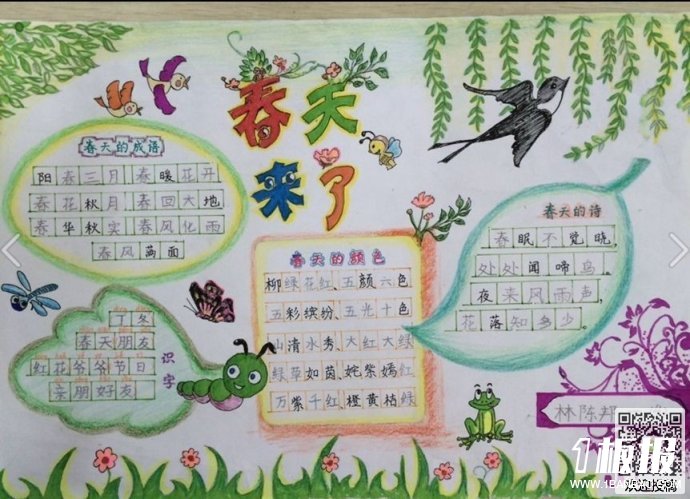 春天
来了
春天的成语
阳春三月 春暖花开
春花秋月 春回大地
春华秋实 春风化雨
春风满面
春天的颜色
柳绿花红、五颜六色
五彩缤纷、五光十色
山清水秀、大红大绿
绿草如茵、姹紫嫣红
万紫千红、橙黄枯绿
春天的诗
春眠不觉晓，
处处闻啼鸟。
夜来风雨声，
花落知多少。
识字
丁冬
春天朋友
红花爷爷节日
亲朋好友
林陈邦
1板报